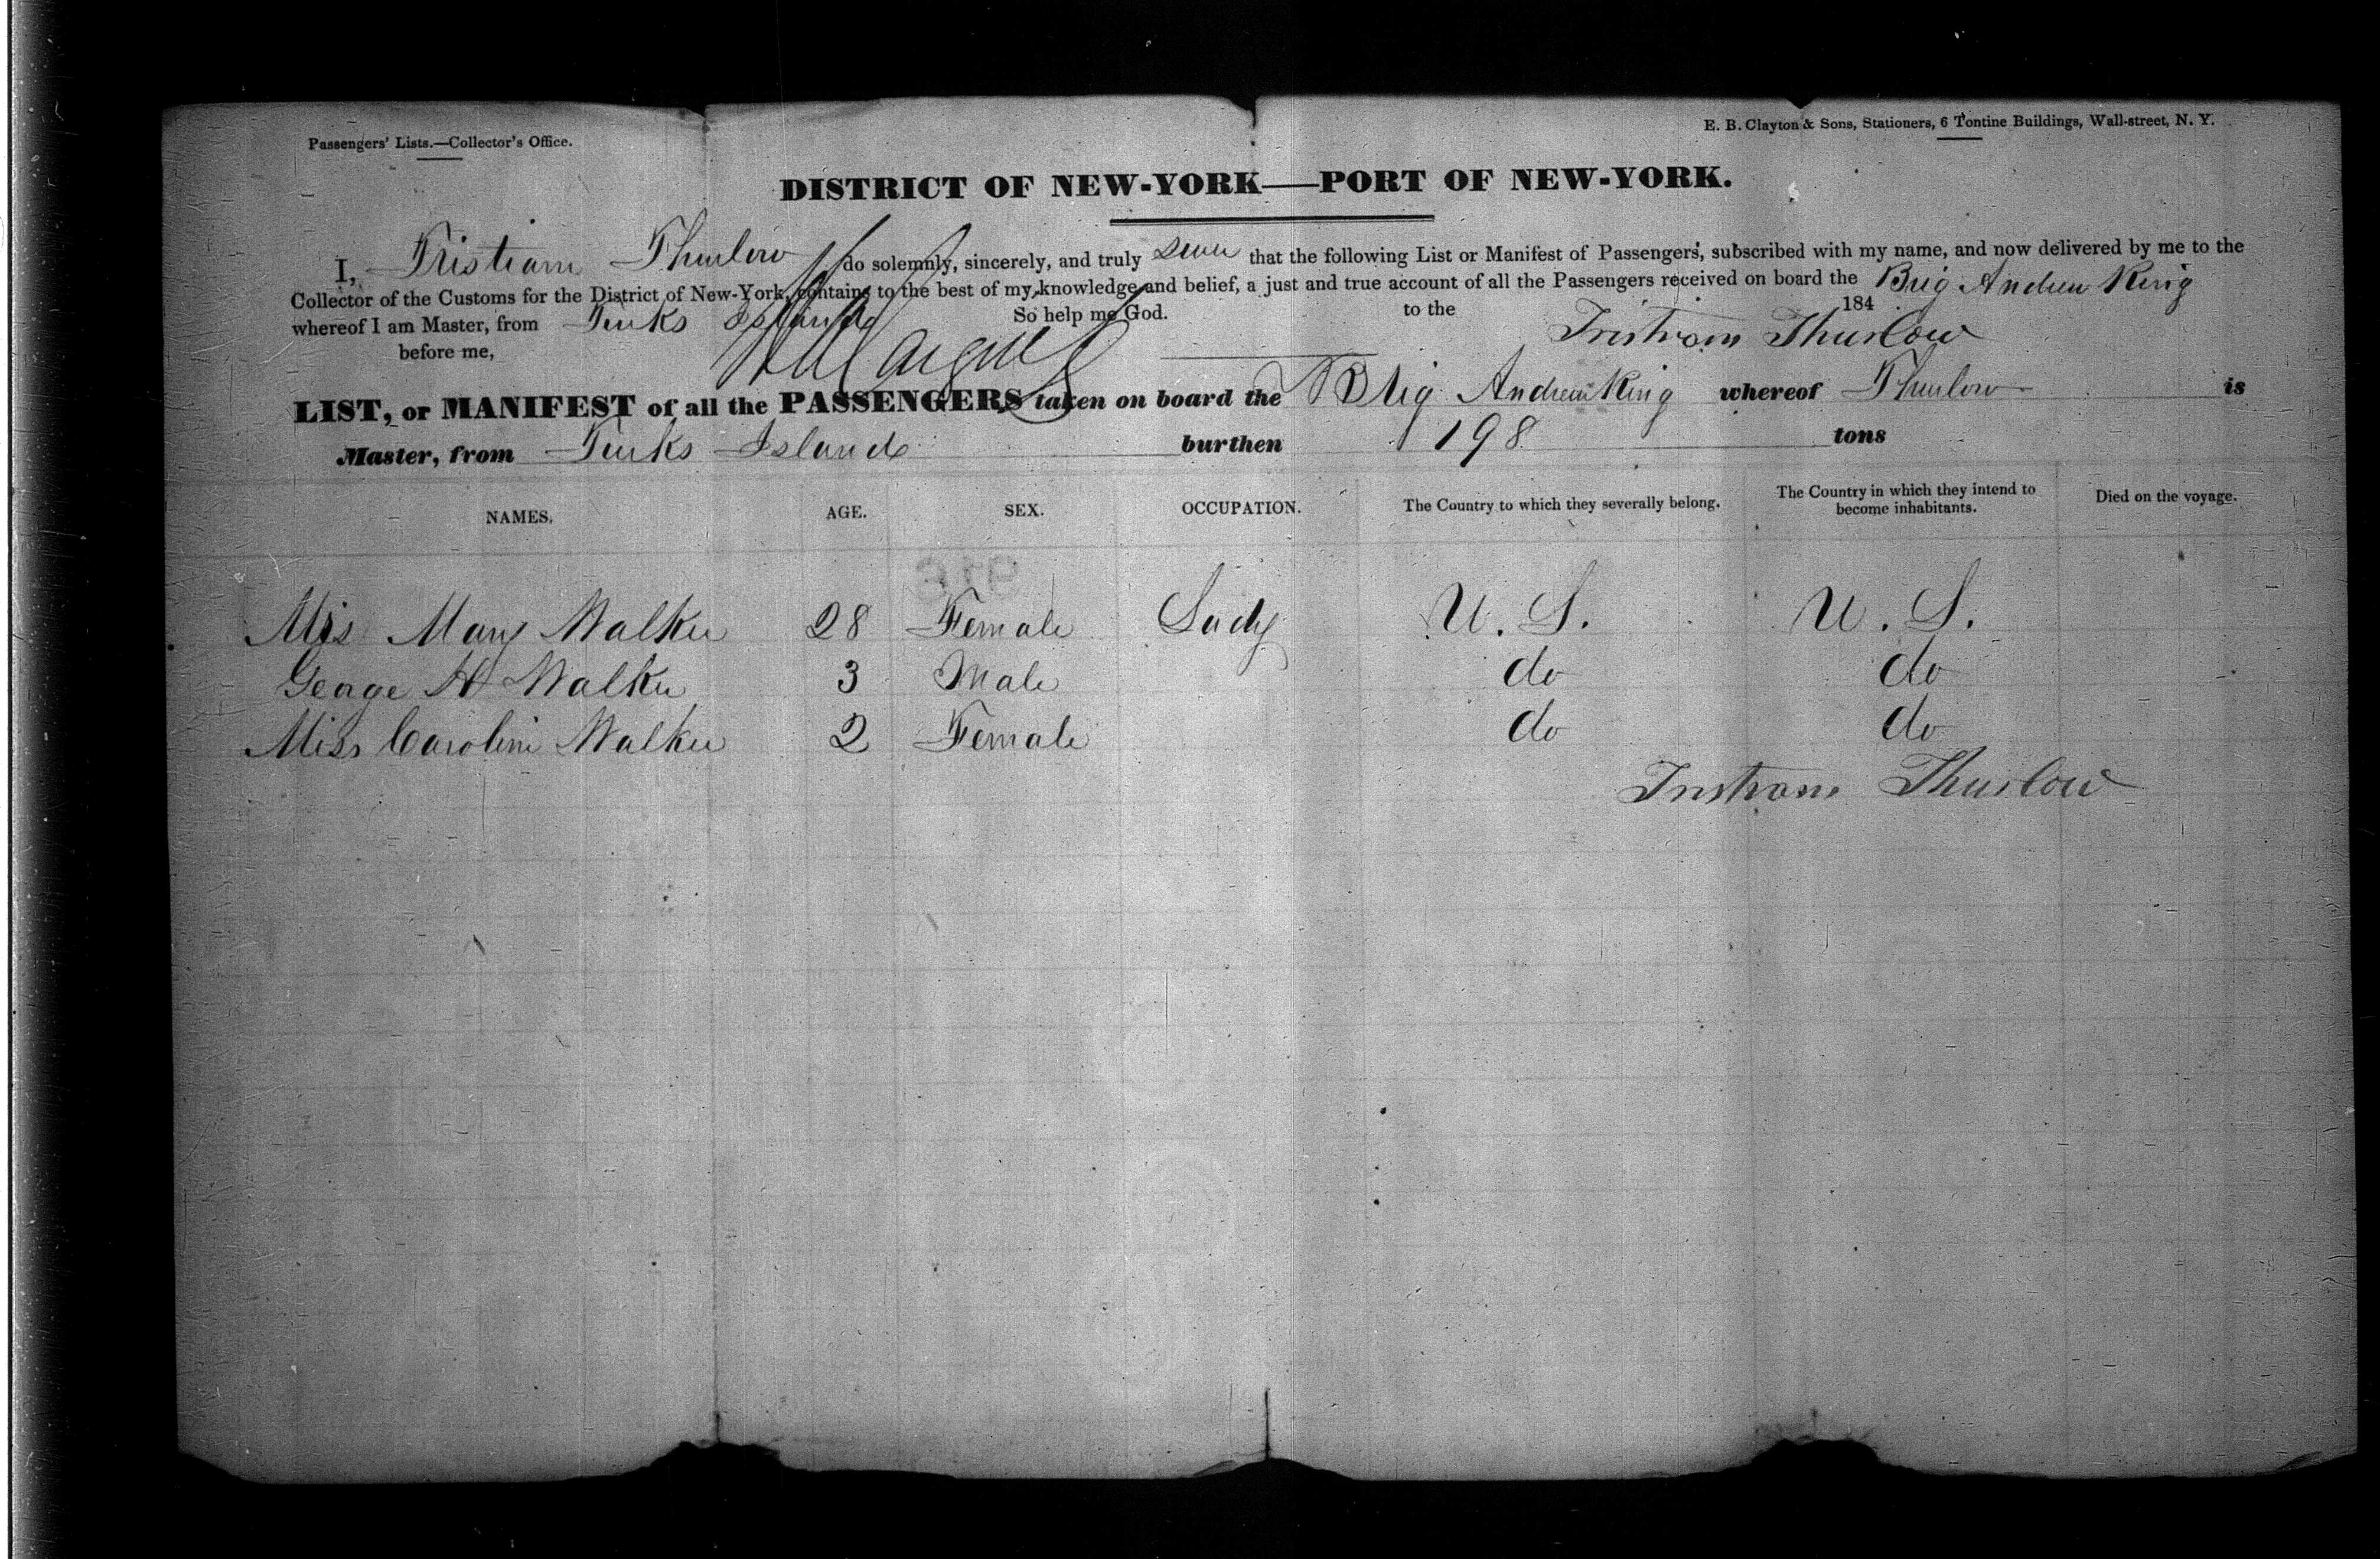 Passengers' Lists.—Collector's Office.
E. B. Clayton & Sons, Stationers, 6 Tontine Buildings, Wall-street, N. Y.
DISTRICT OF NEW-YORK—PORT OF NEW-YORK.
I, Tristram Thurlow do solemnly, sincerely, and truly swear that the following List or Manifest of Passengers, subscribed with my name, and now delivered by me to the
Collector of the Customs for the District of New-York, contains to the best of my knowledge and belief, a just and true account of all the Passengers received on board the Brig Andrew Ring
whereof I am Master, from Turks Island So help me God. to the 184
before me, Tristram Thurlow
LIST, or MANIFEST of all the PASSENGERS taken on board the Brig Andrew Ring whereof Thurlow is
Master, from Turks Island burthen 198 tons
NAMES. AGE. SEX. OCCUPATION. The Country to which they severally belong. The Country in which they intend to become inhabitants. Died on the voyage.
916
Mrs Mary Walker 28 Female Lady U. S. U. S.
George H Walker 3 Male do do
Miss Caroline Walker 2 Female do do
Tristram Thurlow